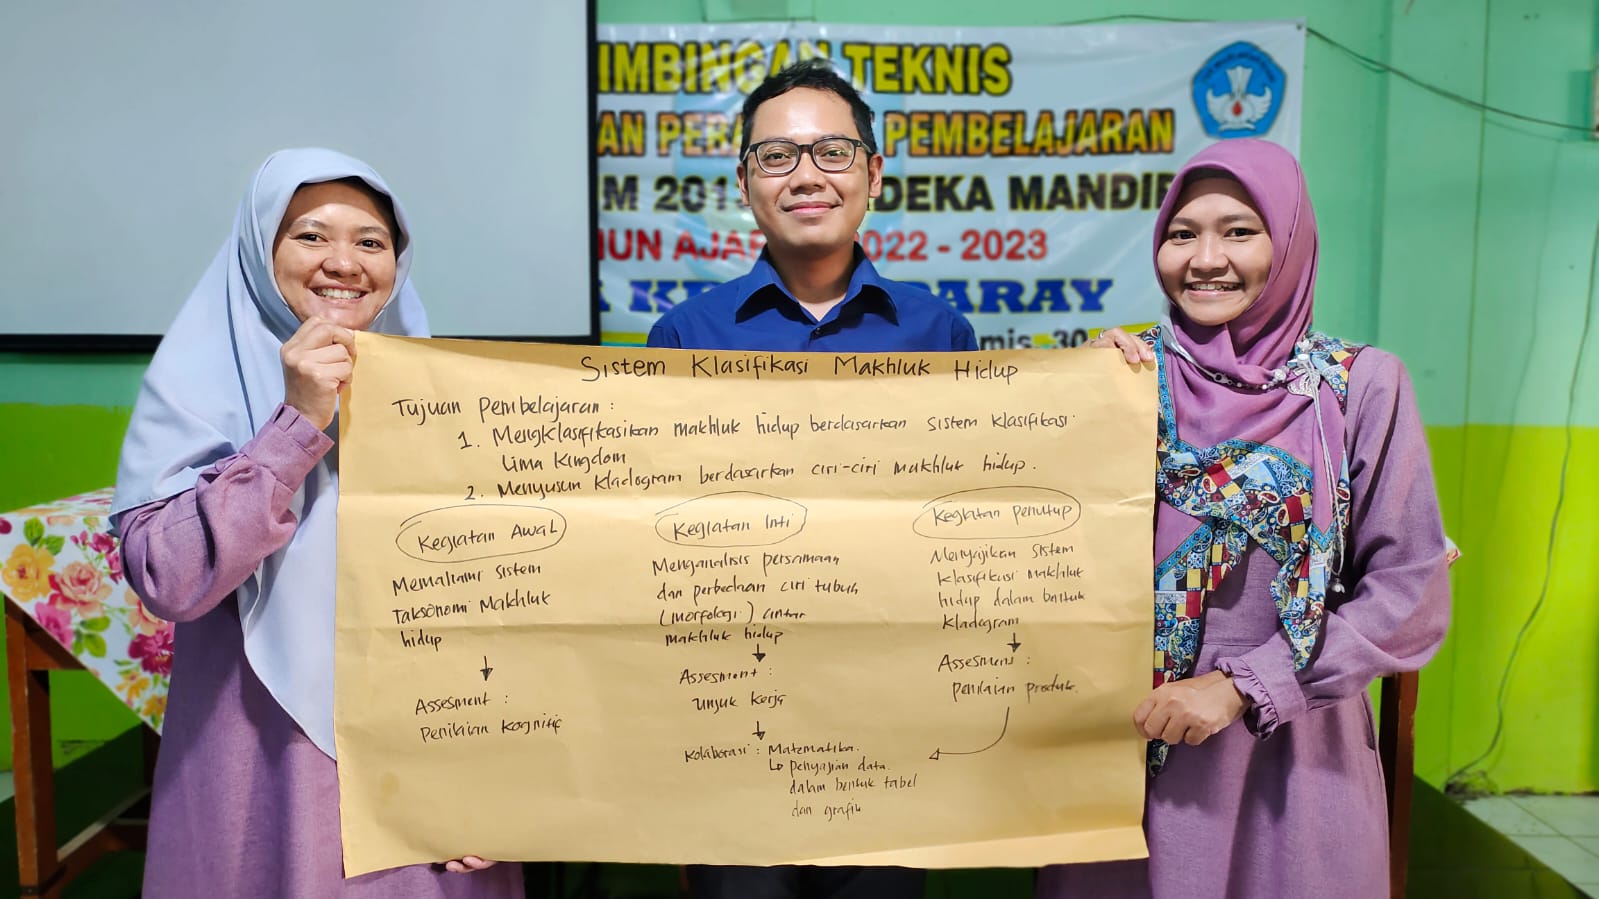 IMBINGAN TEKNIS
AN PERA PEMBELAJARAN
M 201 DEKA MANDIR
HUN AJAR 2022 - 2023
K PARAY
mis, 30
Sistem Klasifikasi Makhluk Hidup
Tujuan Pembelajaran :
1. Mengklasifikasikan makhluk hidup berdasarkan sistem klasifikasi
Lima Kingdom
2. Menyusun Kladogram berdasarkan ciri-ciri makhluk hidup.
Kegiatan Awal
Memahami sistem
Taksonomi Makhluk
hidup
Assesment :
Penilaian Kognitif
Kegiatan Inti
Menganalisis persamaan
dan perbedaan ciri tubuh
(morfologi) antar
makhluk hidup
Assesment :
unjuk kerja
Kolaborasi : Matematika.
penyajian data
dalam bentuk tabel
dan grafik
Kegiatan penutup
Menyajikan sistem
klasifikasi makhluk
hidup dalam bentuk
kladogram
Assesment :
penilaian produk.